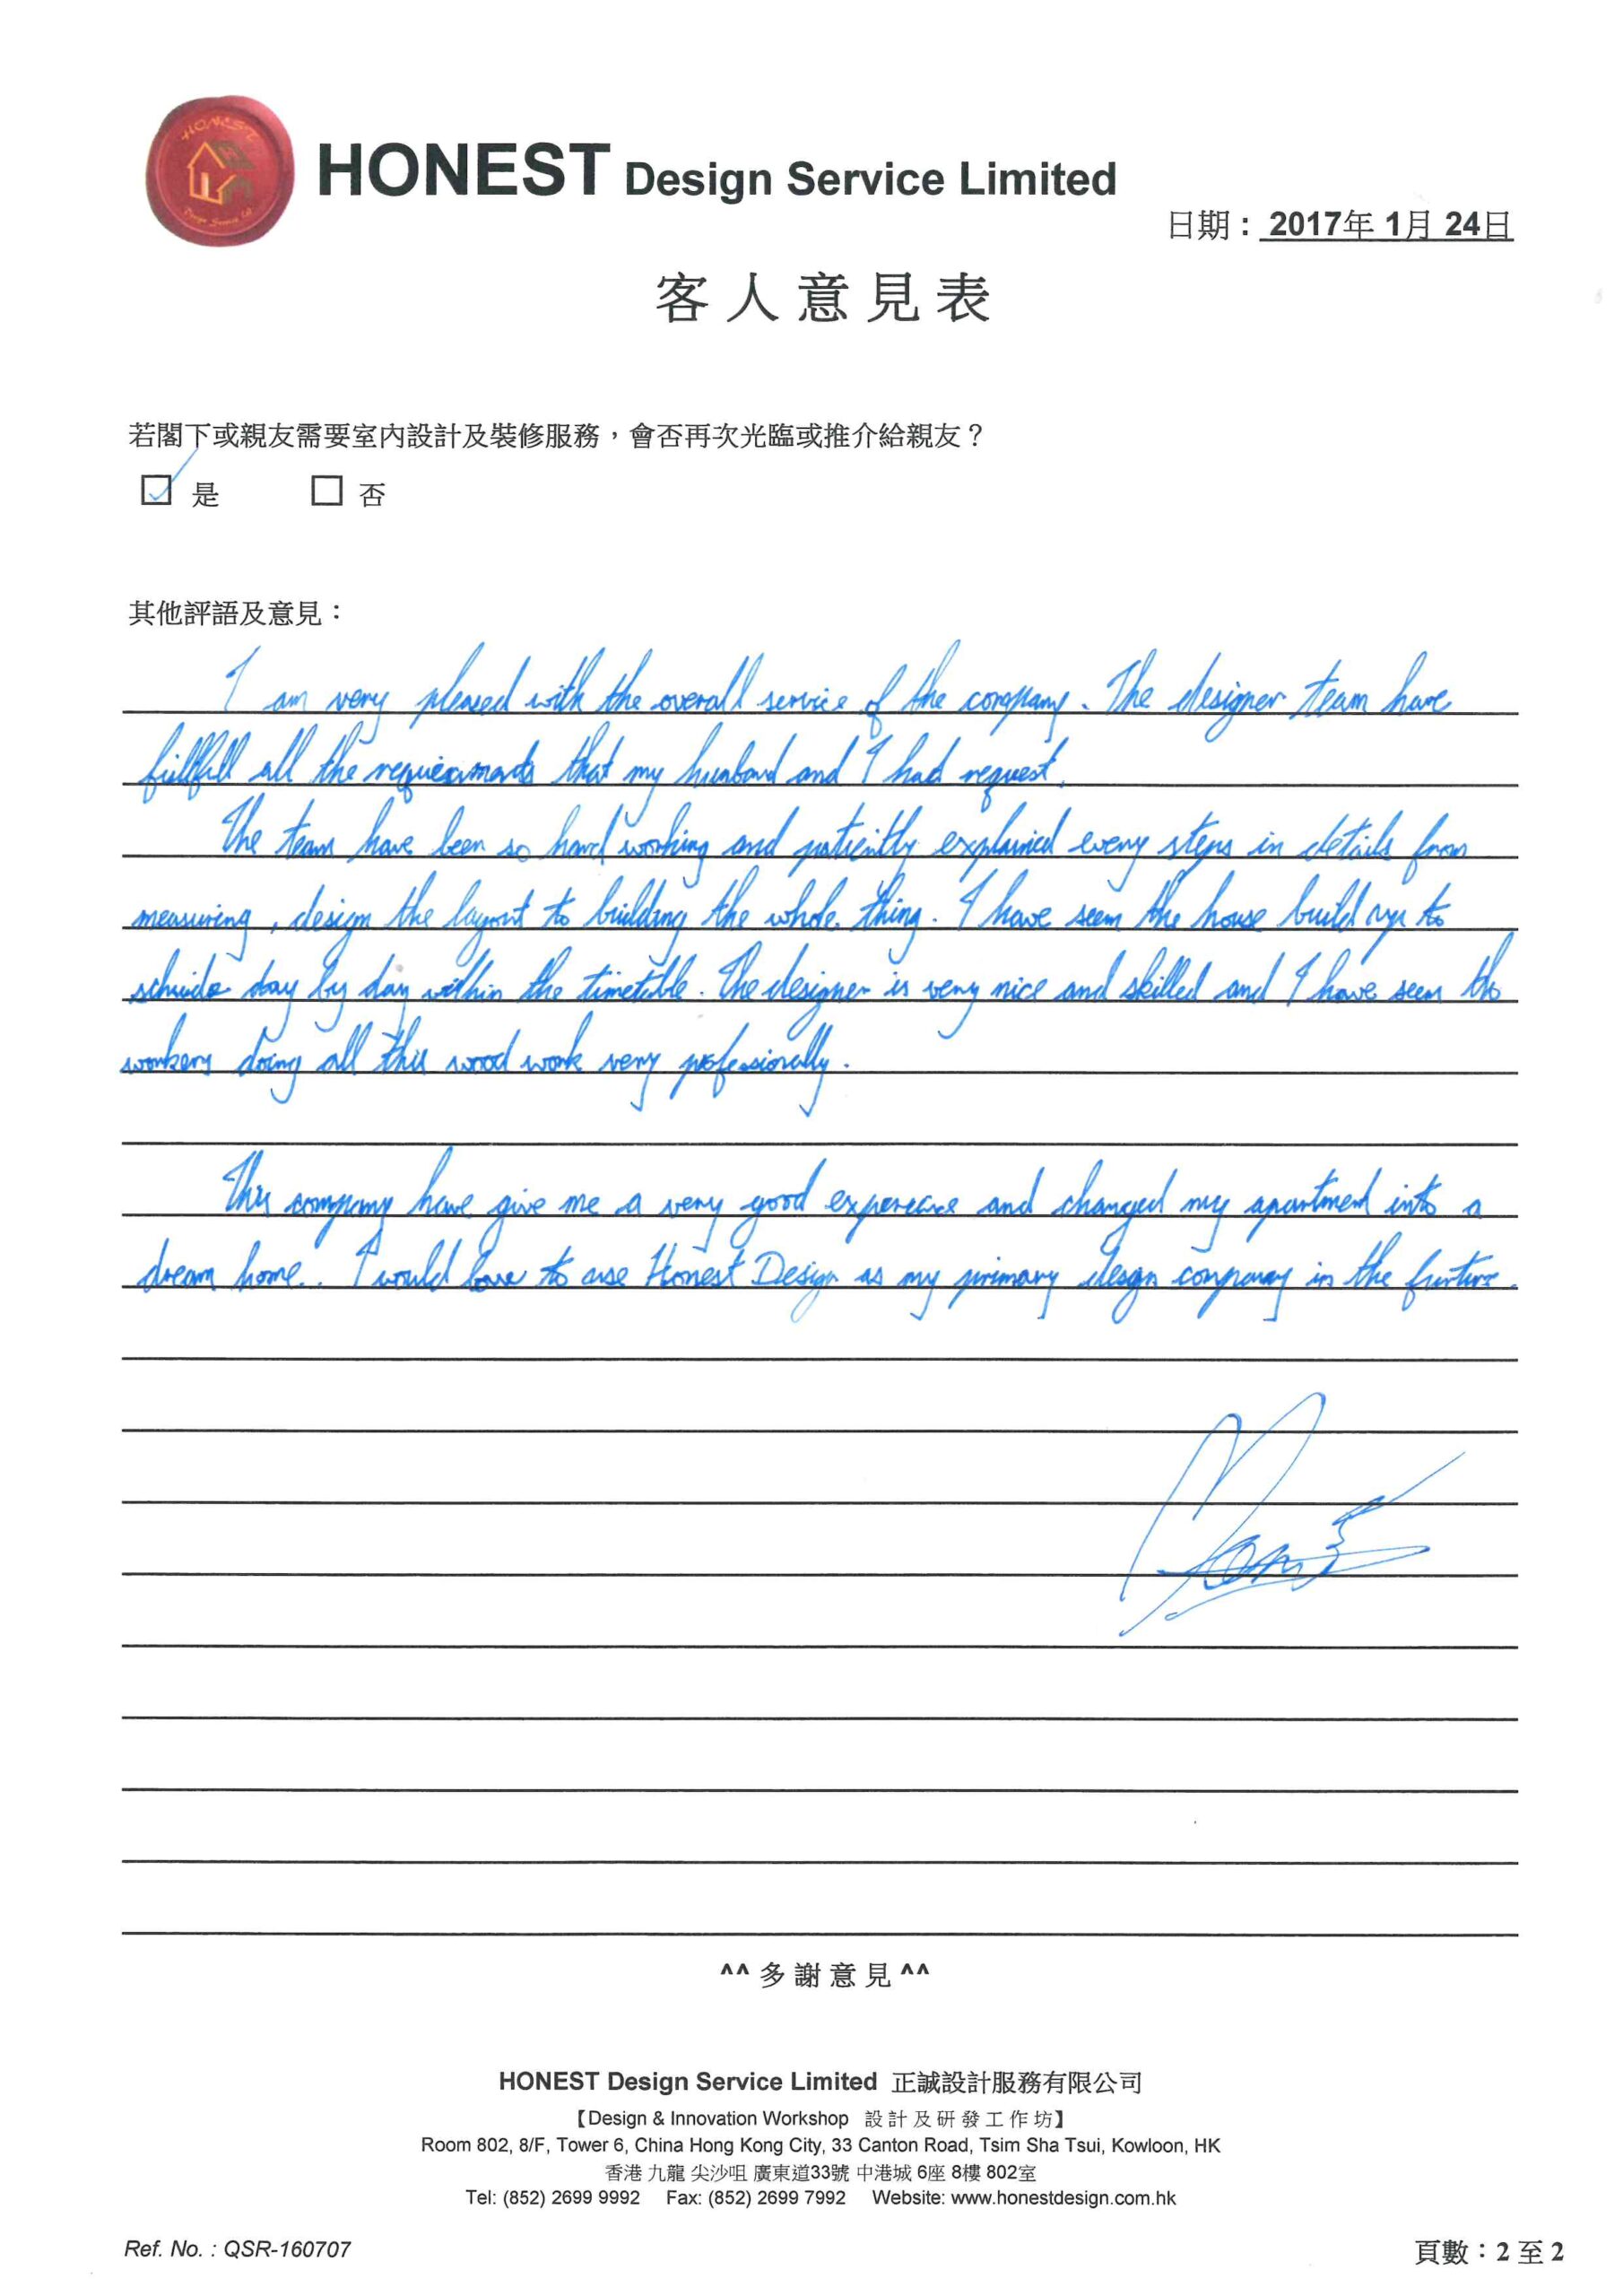 HONEST
HONEST Design Service Limited
日期：2017年 1月 24日
客人意見表
若閣下或親友需要室內設計及裝修服務，會否再次光臨或推介給親友？
是 否
其他評語及意見：
I am very pleased with the overall service of the company. The designer team have
fullfill all the requirements that my husband and I had request.
The team have been so hard working and patiently explained every steps in details from
measuring, design the layout to building the whole thing. I have seem the house build up to
day by day within the timetable. The designer is very nice and skilled and I have seen the
workers doing all this wood work very professionally.
This company have give me a very good experience and changed my apartment into a
dream home.. I would love to use Honest Design as my primary design company in the furture.
^^多謝意見^^
HONEST Design Service Limited 正誠設計服務有限公司
【Design & Innovation Workshop 設計及研發工作坊】
Room 802, 8/F, Tower 6, China Hong Kong City, 33 Canton Road, Tsim Sha Tsui, Kowloon, HK
香港 九龍 尖沙咀 廣東道33號 中港城 6座 8樓 802室
Tel: (852) 2699 9992 Fax: (852) 2699 7992 Website: www.honestdesign.com.hk
Ref. No. : QSR-160707 頁數：2 至 2